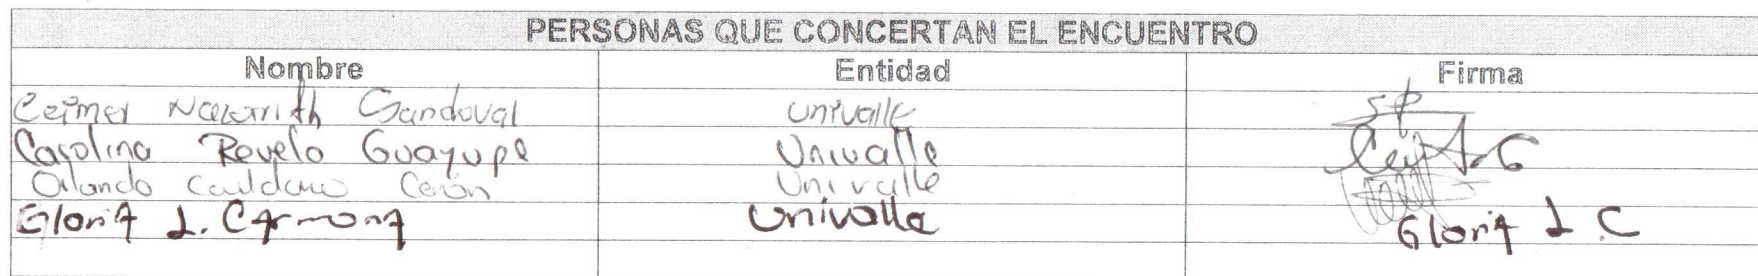 PERSONAS QUE CONCERTAN EL ENCUENTRO
Nombre Entidad Firma
Ceimer Nazarith Sandoval Univalle
Carolina Revelo Guayupe Univalle
Orlando Cerón Univalle
Gloria L. Carmona Univalle Gloria L C